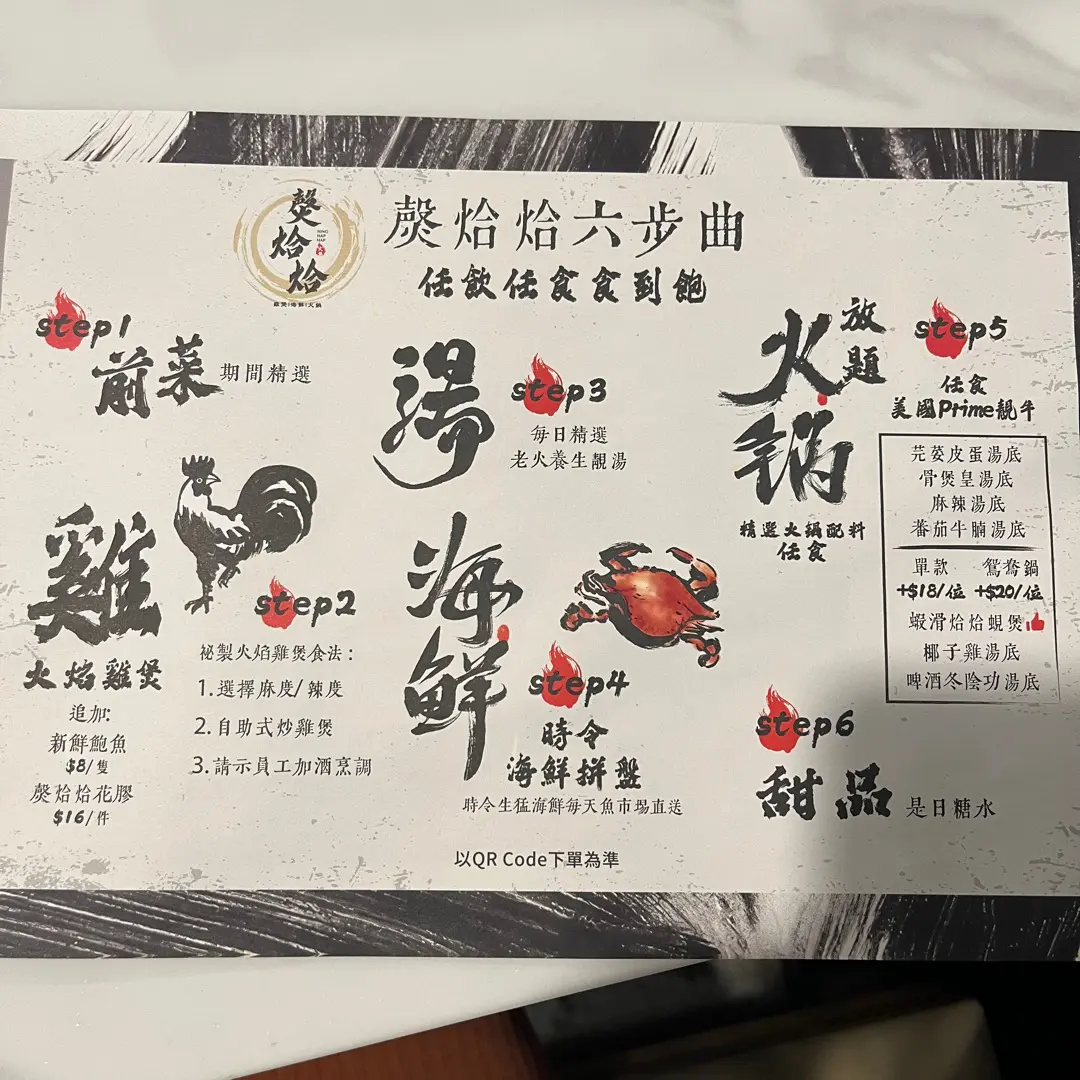 㷫烚烚
NING
HAP
HAP
雞煲|海鮮|火鍋
㷫烚烚六步曲
任飲任食食到飽
step1
前菜
期間精選
雞
step2
火焰雞煲
追加:
新鮮鮑魚
$8/隻
㷫烚烚花膠
$16/件
祕製火焰雞煲食法：
1.選擇麻度/辣度
2.自助式炒雞煲
3.請示員工加酒烹調
湯
step3
每日精選
老火養生靚湯
海鮮
step4
時令
海鮮拼盤
時令生猛海鮮每天魚市場直送
火鍋
放題
精選火鍋配料
任食
step5
任食
美國Prime靚牛
芫荽皮蛋湯底
骨煲皇湯底
麻辣湯底
番茄牛腩湯底
單款 鴛鴦鍋
+$18/位 +$20/位
蝦滑烚烚蜆煲
椰子雞湯底
啤酒冬陰功湯底
step6
甜品
是日糖水
以QR Code下單為準